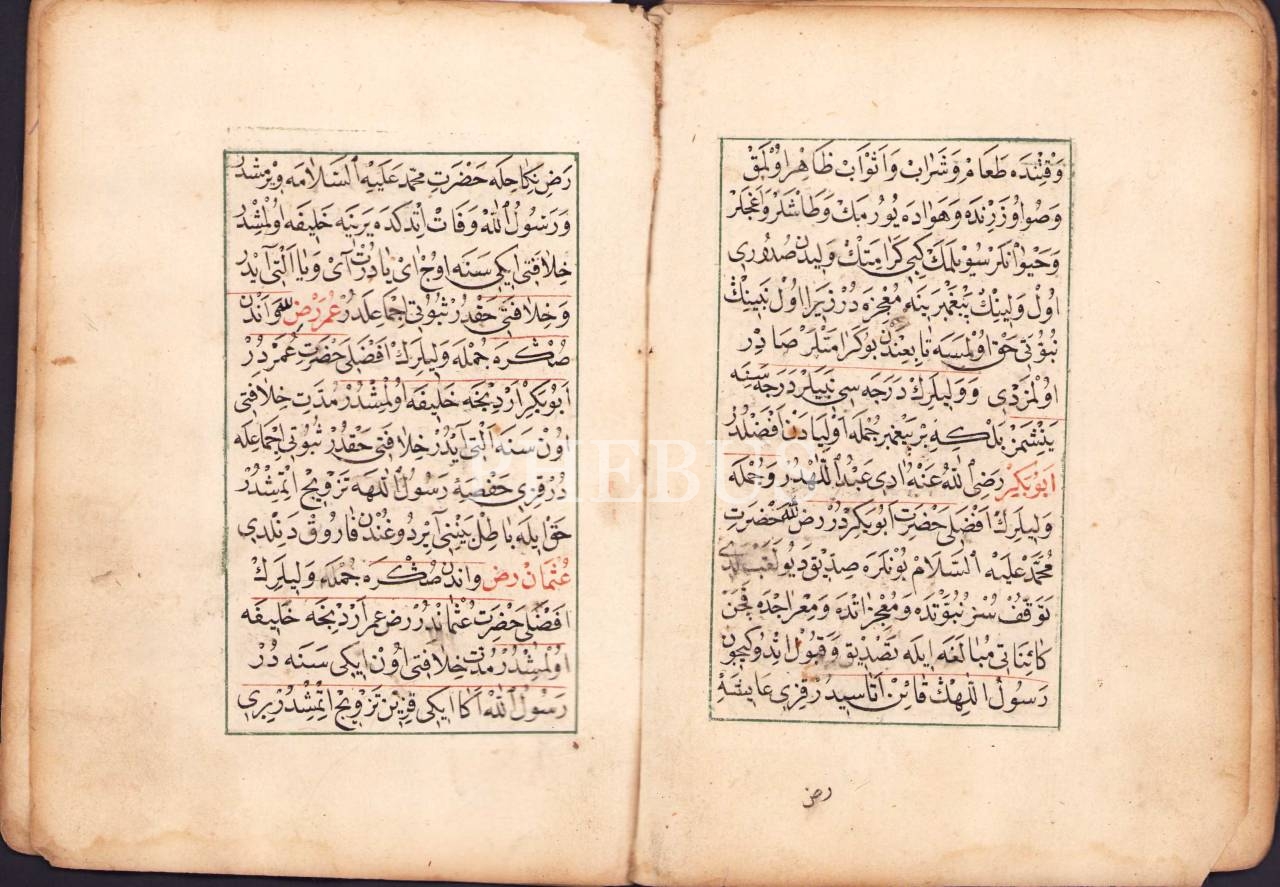 وقتنده طعام و شراب و اثواب ظاهر اولمق
و صو اوزرنده و هواده یورومك و طاشلر و اغجلر
و حیوانلر سویلمك كبی كرامتك ولیدن صدوری
اول ولینك پیغمبرینه معجزه در زیرا اول نبینك
نبوتی حق اولمسه تابعندن بو كرامتلر صادر
اولمزدی و ولیلرك درجه سی نبیلر درجه سنه
یتشمز بلكه بر پیغمبر جمله اولیادن افضلدر
ابو بكر رضی الله عنه ادی عبد اللهدر و جمله
ولیلرك افضلی حضرت ابو بكردر رض الله حضرت
محمد علیه السلام بونلره صدیق دیو لقب
توقف سز نبوتده و معجزاتده و معراجده
كائناتی مبالغه ایله تصدیق و قبول اتدوكیچون
رسول اللهك قائن اتاسیدر قزی عایشه
رض
رض نكاحله حضرت محمد علیه السلامه ویرمشدر
و رسول الله وفات اتدكده یرینه خلیفه اولمشدر
خلافتی ایكی سنه اوچ ای یا درت آی و یا التی آیدر
و خلافتی حقدر ثبوتی اجماعلدر عمر رض الله و اندن
صكره جمله ولیلرك افضلی حضرت عمردر
ابو بكر اردنجه خلیفه اولمشدر مدت خلافتی
اون سنه التی آیدر خلافتی حقدر ثبوتی اجماعله
در قزی حفصه رسول اللهه تزویج اتمشدر
حق ایله باطل بیننی آیردوغندن فاروق دنلدی
عثمان رض و اندن صكره جمله ولیلرك
افضلی حضرت عثماندر رض عمر اردنجه خلیفه
اولمشدر مدت خلافتی اون ایكی سنه در
رسول الله اكا ایكی قزین تزویج اتمشدر بری
PHEBUS